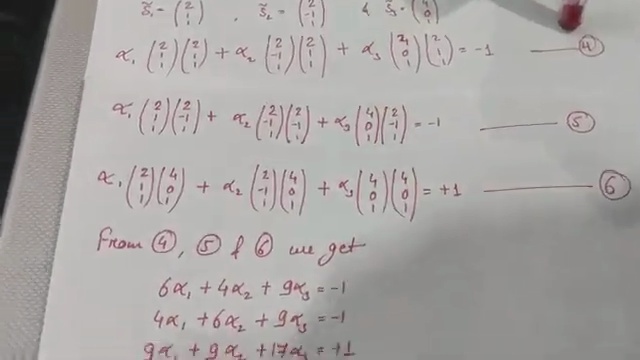 s̃₁ = (2 1 1) , s̃₂ = (2 -1 1) & s̃₃ = (4 0 1)
α₁ (2 1 1) (2 1 1) + α₂ (2 -1 1) (2 1 1) + α₃ (4 0 1) (2 1 1) = -1 —— ④
α₁ (2 1 1) (2 -1 1) + α₂ (2 -1 1) (2 -1 1) + α₃ (4 0 1) (2 -1 1) = -1 —— ⑤
α₁ (2 1 1) (4 0 1) + α₂ (2 -1 1) (4 0 1) + α₃ (4 0 1) (4 0 1) = +1 —— ⑥
From ④, ⑤ & ⑥ we get
6α₁ + 4α₂ + 9α₃ = -1
4α₁ + 6α₂ + 9α₃ = -1
9α₁ + 9α₂ + 17α₃ = +1